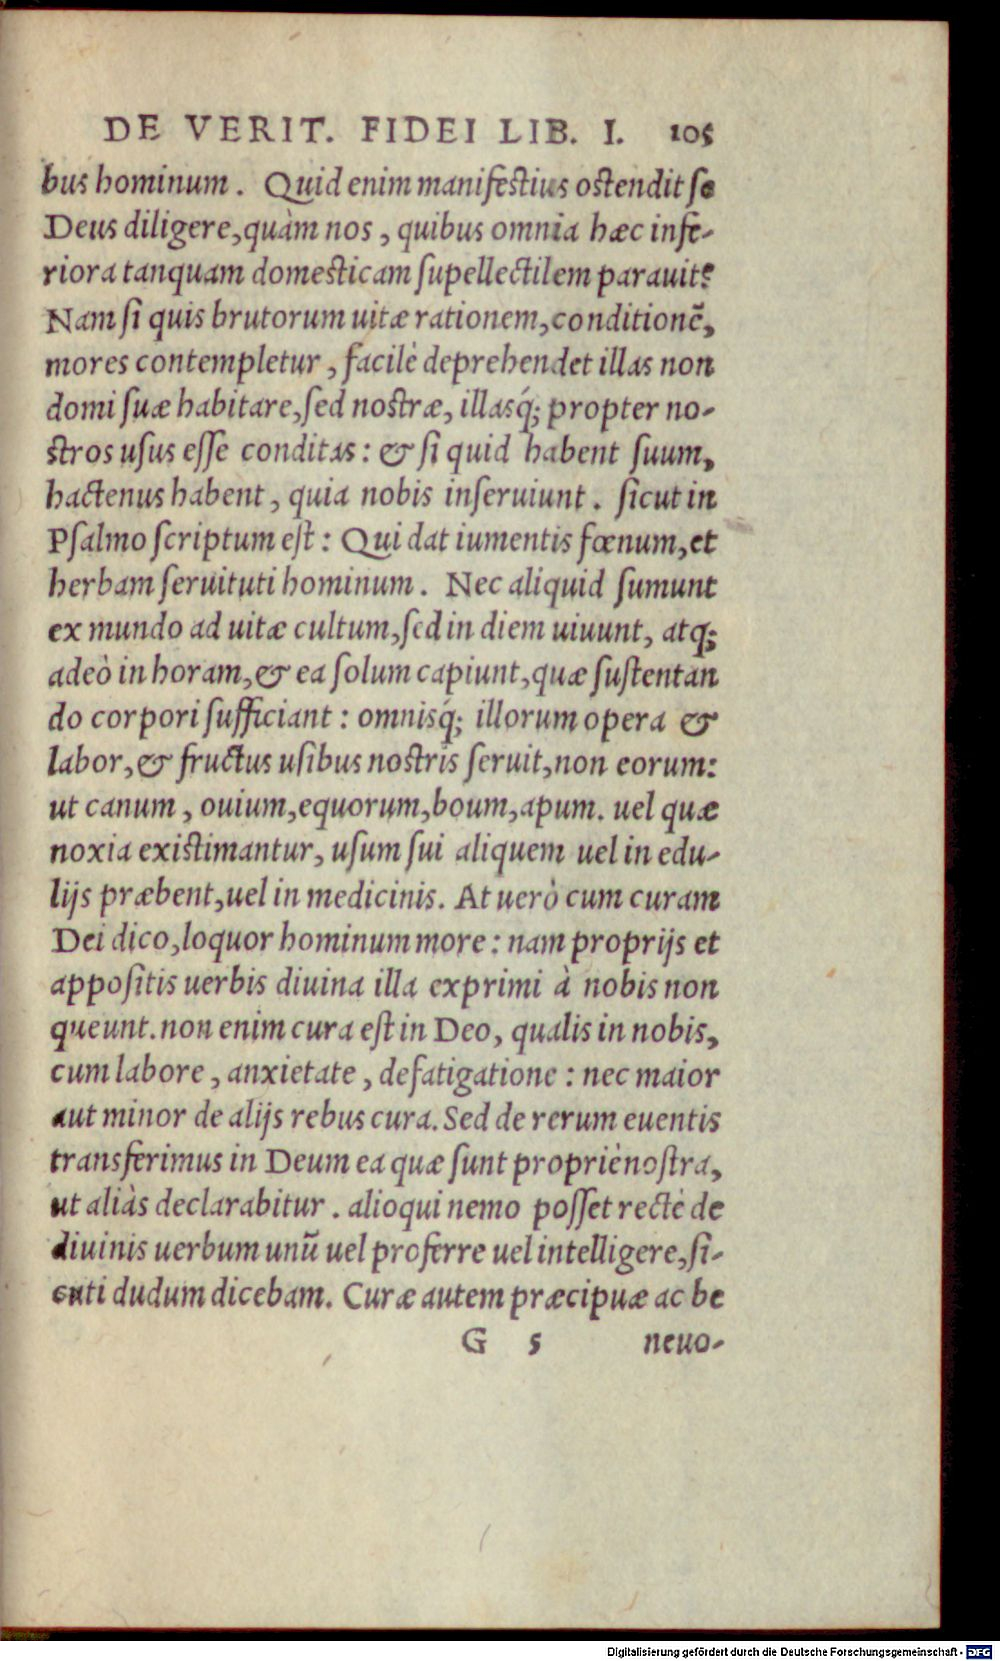 DE VERIT. FIDEI LIB. I. 105
bus hominum. Quid enim manifestius ostendit se
Deus diligere, quàm nos, quibus omnia hæc infe-
riora tanquam domesticam supellectilem parauit?
Nam si quis brutorum uitæ rationem, conditionẽ,
mores contempletur, facilè deprehendet illas non
domi suæ habitare, sed nostræ, illasq́; propter no-
stros usus esse conditas: & si quid habent suum,
hactenus habent, quia nobis inseruiunt. sicut in
Psalmo scriptum est: Qui dat iumentis fœnum, et
herbam seruituti hominum. Nec aliquid sumunt
ex mundo ad uitæ cultum, sed in diem uiuunt, atq;
adeò in horam, & ea solum capiunt, quæ sustentan
do corpori sufficiant: omnisq́; illorum opera &
labor, & fructus usibus nostris seruit, non eorum:
ut canum, ouium, equorum, boum, apum. uel quæ
noxia existimantur, usum sui aliquem uel in edu-
lijs præbent, uel in medicinis. At uerò cum curam
Dei dico, loquor hominum more: nam proprijs et
appositis uerbis diuina illa exprimi à nobis non
queunt. non enim cura est in Deo, qualis in nobis,
cum labore, anxietate, defatigatione: nec maior
aut minor de alijs rebus cura. Sed de rerum euentis
transferimus in Deum ea quæ sunt propriè nostra,
ut aliàs declarabitur. alioqui nemo posset rectè de
diuinis uerbum unũ uel proferre uel intelligere, si-
cuti dudum dicebam. Curæ autem præcipuæ ac be
G 5 neuo-
Digitalisierung gefördert durch die Deutsche Forschungsgemeinschaft - DFG